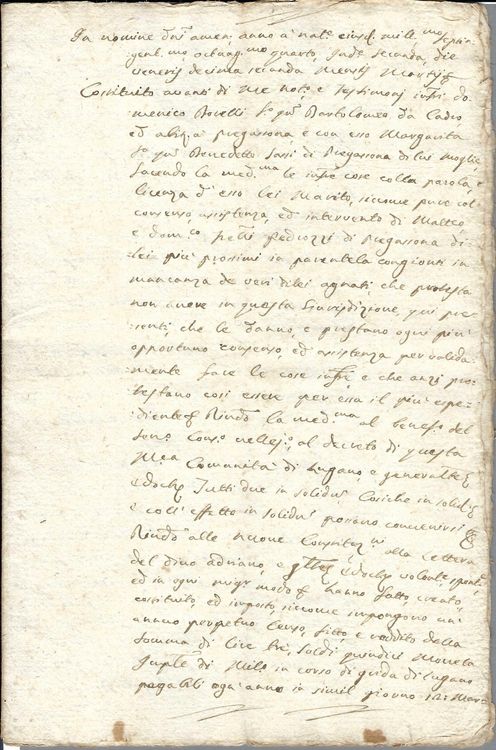 In nomine Dni amen, anno a natte eiusd. mill.mo septin
gent.mo octuag.mo quarto, Indne secunda, die
veneris decima secunda mensis Martij
Constituito avanti di me Nots. e Testimonj infri do
menico Rovelli fo. qm Bartolomeo da Cadro
ed abita a Pregassona, e con esso Margarita
fa. qm Benedetto Sassi di Pregassona di lui moglie,
facendo la med.ma le infre cose colla parola, e
licenza d'esso lei Marito, siccome pure col
consenso, assistenza, ed intervento di Matteo
e Dom.co frelli Pedrozzi di Pregassona di
lei più prossimi in parentela congionti in
mancanza de veri di lei agnati, che protesta
non avere in questa Giurisdizione, qui pre
senti, che le danno, e prestano ogni più
opportuno consenso, ed assistenza per valida
mente fare le cose infre e che anzi pro
testano così essere per essa il più espe
diente Rindo la med.ma al benefo. del
Sento. Conso. Vellejo. al decreto di questa
Mca Comunità di Lugano, e generalte
Tutti due in solidum, Cosiche in solido
e coll'effetto in solidum possano convenirsi
Rindo alle nuove Constitni. alla lettera
del divo adriano, e volonte. spont
ed in ogni miglr modo hanno fatto, creato,
costituito, ed imposto, siccome impongono un
annuo perpetuo Censo, fitto, e reddito della
somma di lire tre, soldi quindici moneta
Imple di Milo in corso di grida di Lugano
pagabili ogni anno in simil giorno 12: Mar=